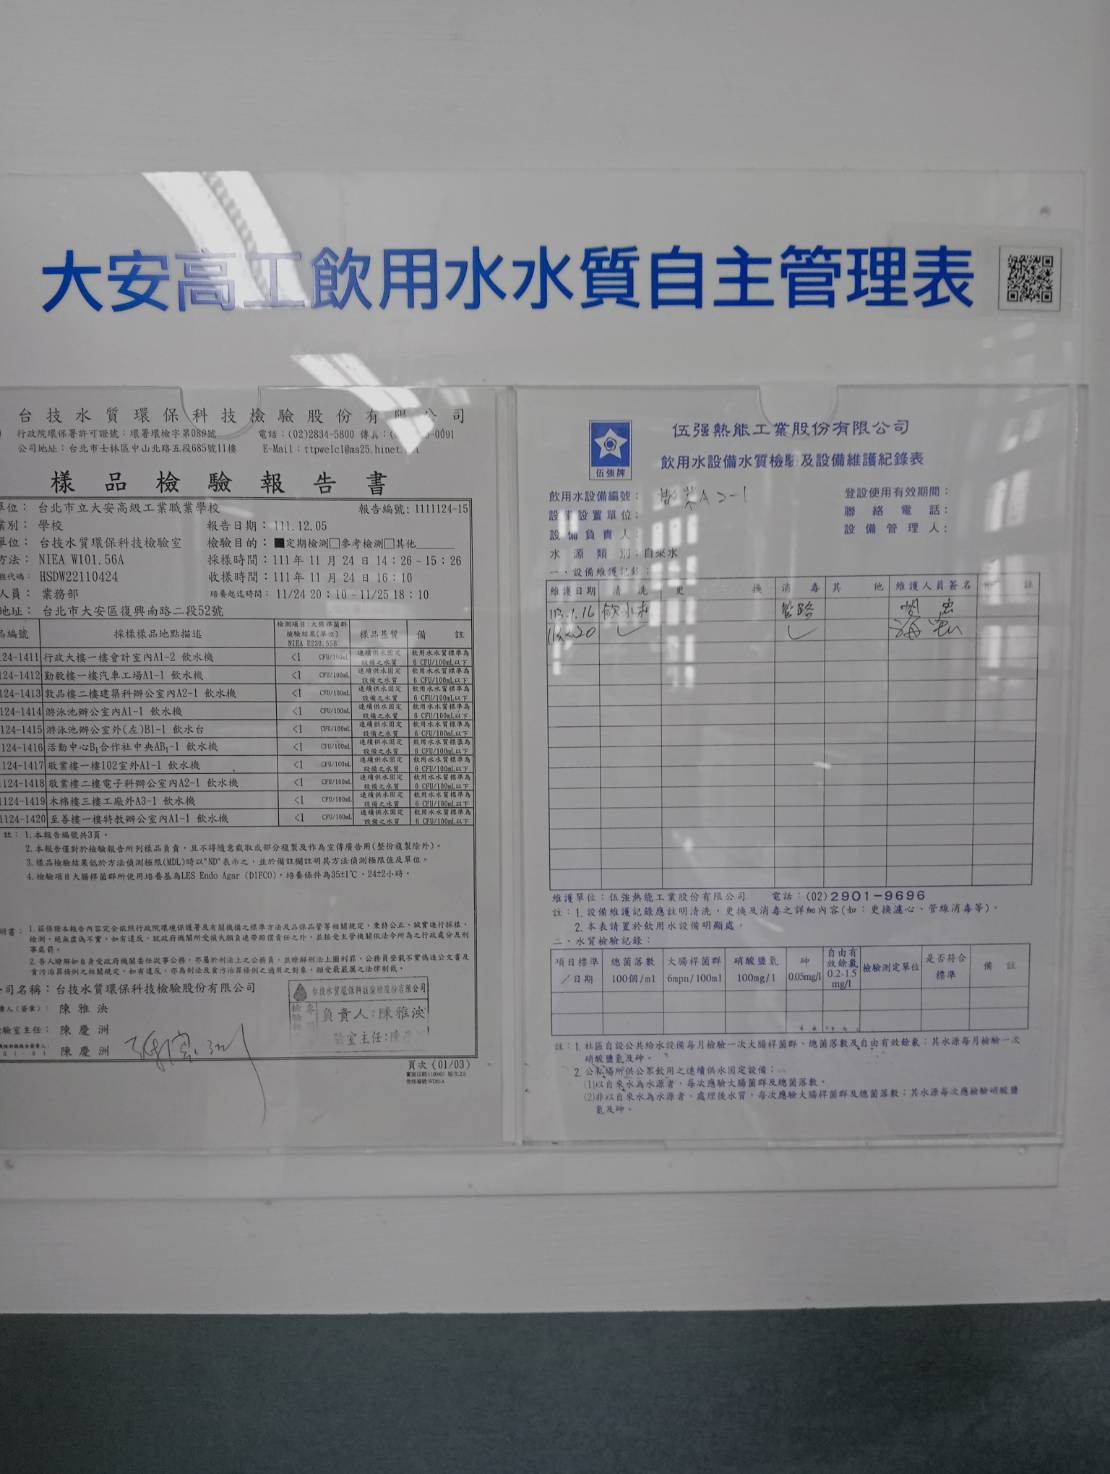 大安高工飲用水水質自主管理表
台技水質環保科技檢驗股份有限公司
行政院環保署許可證號：環署環檢字第089號 電話：(02)2834-5800 傳真：
公司地址：台北市士林區中山北路五段685號11樓 E-Mail：
樣品檢驗報告書
單位：台北市立大安高級工業職業學校 報告編號：1111124-15
類別：學校 報告日期：111.12.05
單位：台技水質環保科技檢驗室 檢驗目的：■定期檢測□參考檢測□其他
方法：NIEA W101.56A 採樣時間：111年11月24日14：26-15：26
HSDW22110424 收樣時間：111年11月24日16：10
人員：業務部 培養起迄時間：11/24 20：10-11/25 18：10
地址：台北市大安區復興南路二段52號
編號 採樣樣品地點描述 檢測項目:大腸桿菌群 檢驗結果(單位) 樣品基質 備 註
124-1411 行政大樓一樓會計室內A1-2 飲水機 <1 CFU/100mL 連續供水固定設備之水質 飲用水水質標準為6 CFU/100mL以下
124-1412 勤毅樓一樓汽車工場A1-1 飲水機 <1 CFU/100mL 連續供水固定設備之水質 飲用水水質標準為6 CFU/100mL以下
124-1413 敦品樓二樓建築科辦公室內A2-1 飲水機 <1 CFU/100mL 連續供水固定設備之水質 飲用水水質標準為6 CFU/100mL以下
124-1414 游泳池辦公室內A1-1 飲水機 <1 CFU/100mL 連續供水固定設備之水質 飲用水水質標準為6 CFU/100mL以下
124-1415 游泳池辦公室外(左)B1-1 飲水台 <1 CFU/100mL 連續供水固定設備之水質 飲用水水質標準為6 CFU/100mL以下
124-1416 活動中心B1合作社中央AB1-1 飲水機 <1 CFU/100mL 連續供水固定設備之水質 飲用水水質標準為6 CFU/100mL以下
124-1417 敬業樓一樓102室外A1-1 飲水機 <1 CFU/100mL 連續供水固定設備之水質 飲用水水質標準為6 CFU/100mL以下
124-1418 敬業樓二樓電子科辦公室內A2-1 飲水機 <1 CFU/100mL 連續供水固定設備之水質 飲用水水質標準為6 CFU/100mL以下
124-1419 木棉樓三樓工廠外A3-1 飲水機 <1 CFU/100mL 連續供水固定設備之水質 飲用水水質標準為6 CFU/100mL以下
124-1420 至善樓一樓特教辦公室內A1-1 飲水機 <1 CFU/100mL 連續供水固定設備之水質 飲用水水質標準為6 CFU/100mL以下
註：1.本報告編號共3頁。
2.本報告僅對於檢驗報告所列樣品負責，且不得隨意截取或部分複製及作為宣傳廣告用(整份複製除外)。
3.樣品檢驗結果低於方法偵測極限(MDL)時以"ND"表示之，並於備註欄註明其方法偵測極限值及單位。
4.檢驗項目大腸桿菌群所使用培養基為LES Endo Agar (DIFCO)，培養條件為35±1℃、24±2小時。
明書：1.茲保證本報告內容完全依照行政院環境保護署及有關機構之標準方法及品保品管等相關規定，秉持公正、誠實進行採樣、
檢測，絕無虛偽不實，如有違反，就政府機關所受損失願負連帶賠償責任之外，並接受主管機關依法令所為之行政處分及刑
事處罰。
2.吾人瞭解如自身受政府機關委任從事公務，亦屬於刑法上之公務員，並瞭解刑法上圖利罪、公務員登載不實偽造公文書及
貪污治罪條例之相關規定，如有違反，亦為刑法及貪污治罪條例之適用之對象，願受最嚴厲之法律制裁。
公司名稱：台技水質環保科技檢驗股份有限公司
責人(簽章)：陳雅泱
檢驗室主任：陳慶洲
陳慶洲
台技水質環保科技檢驗股份有限公司
負責人：陳雅泱
驗室主任：陳
頁次(01/03)
伍強牌
伍强熱能工業股份有限公司
飲用水設備水質檢驗及設備維護紀錄表
飲用水設備編號： A2-1 登設使用有效期間：
設備設置單位： 聯絡電話：
設備負責人： 設備管理人：
水源類別：自來水
一、設備維護記錄：
維護日期 清洗 更換 消毒 其他 維護人員簽名 附註
113.1.16 飲水機 管路
維護單位：伍強熱能工業股份有限公司 電話：(02)2901-9696
註：1.設備維護記錄應註明清洗、更換及消毒之詳細內容(如：更換濾心、管線消毒等)。
2.本表請置於飲用水設備明顯處。
二、水質檢驗記錄：
項目標準／日期 總菌落數100個/ml 大腸桿菌群6mpn/100ml 硝酸鹽氮100mg/l 砷0.05mg/l 自由有效餘氯0.2-1.5mg/l 檢驗測定單位 是否符合標準 備註
註：1.社區自設公共給水設備每月檢驗一次大腸桿菌群、總菌落數及自由有效餘氯；其水源每月檢驗一次
硝酸鹽氮及砷。
2.公私場所供公眾飲用之連續供水固定設備：
(1)以自來水為水源者，每次應驗大腸菌群及總菌落數。
(2)非以自來水為水源者，處理後水質，每次應驗大腸桿菌群及總菌落數；其水源每次應檢驗硝酸鹽
氮及砷。